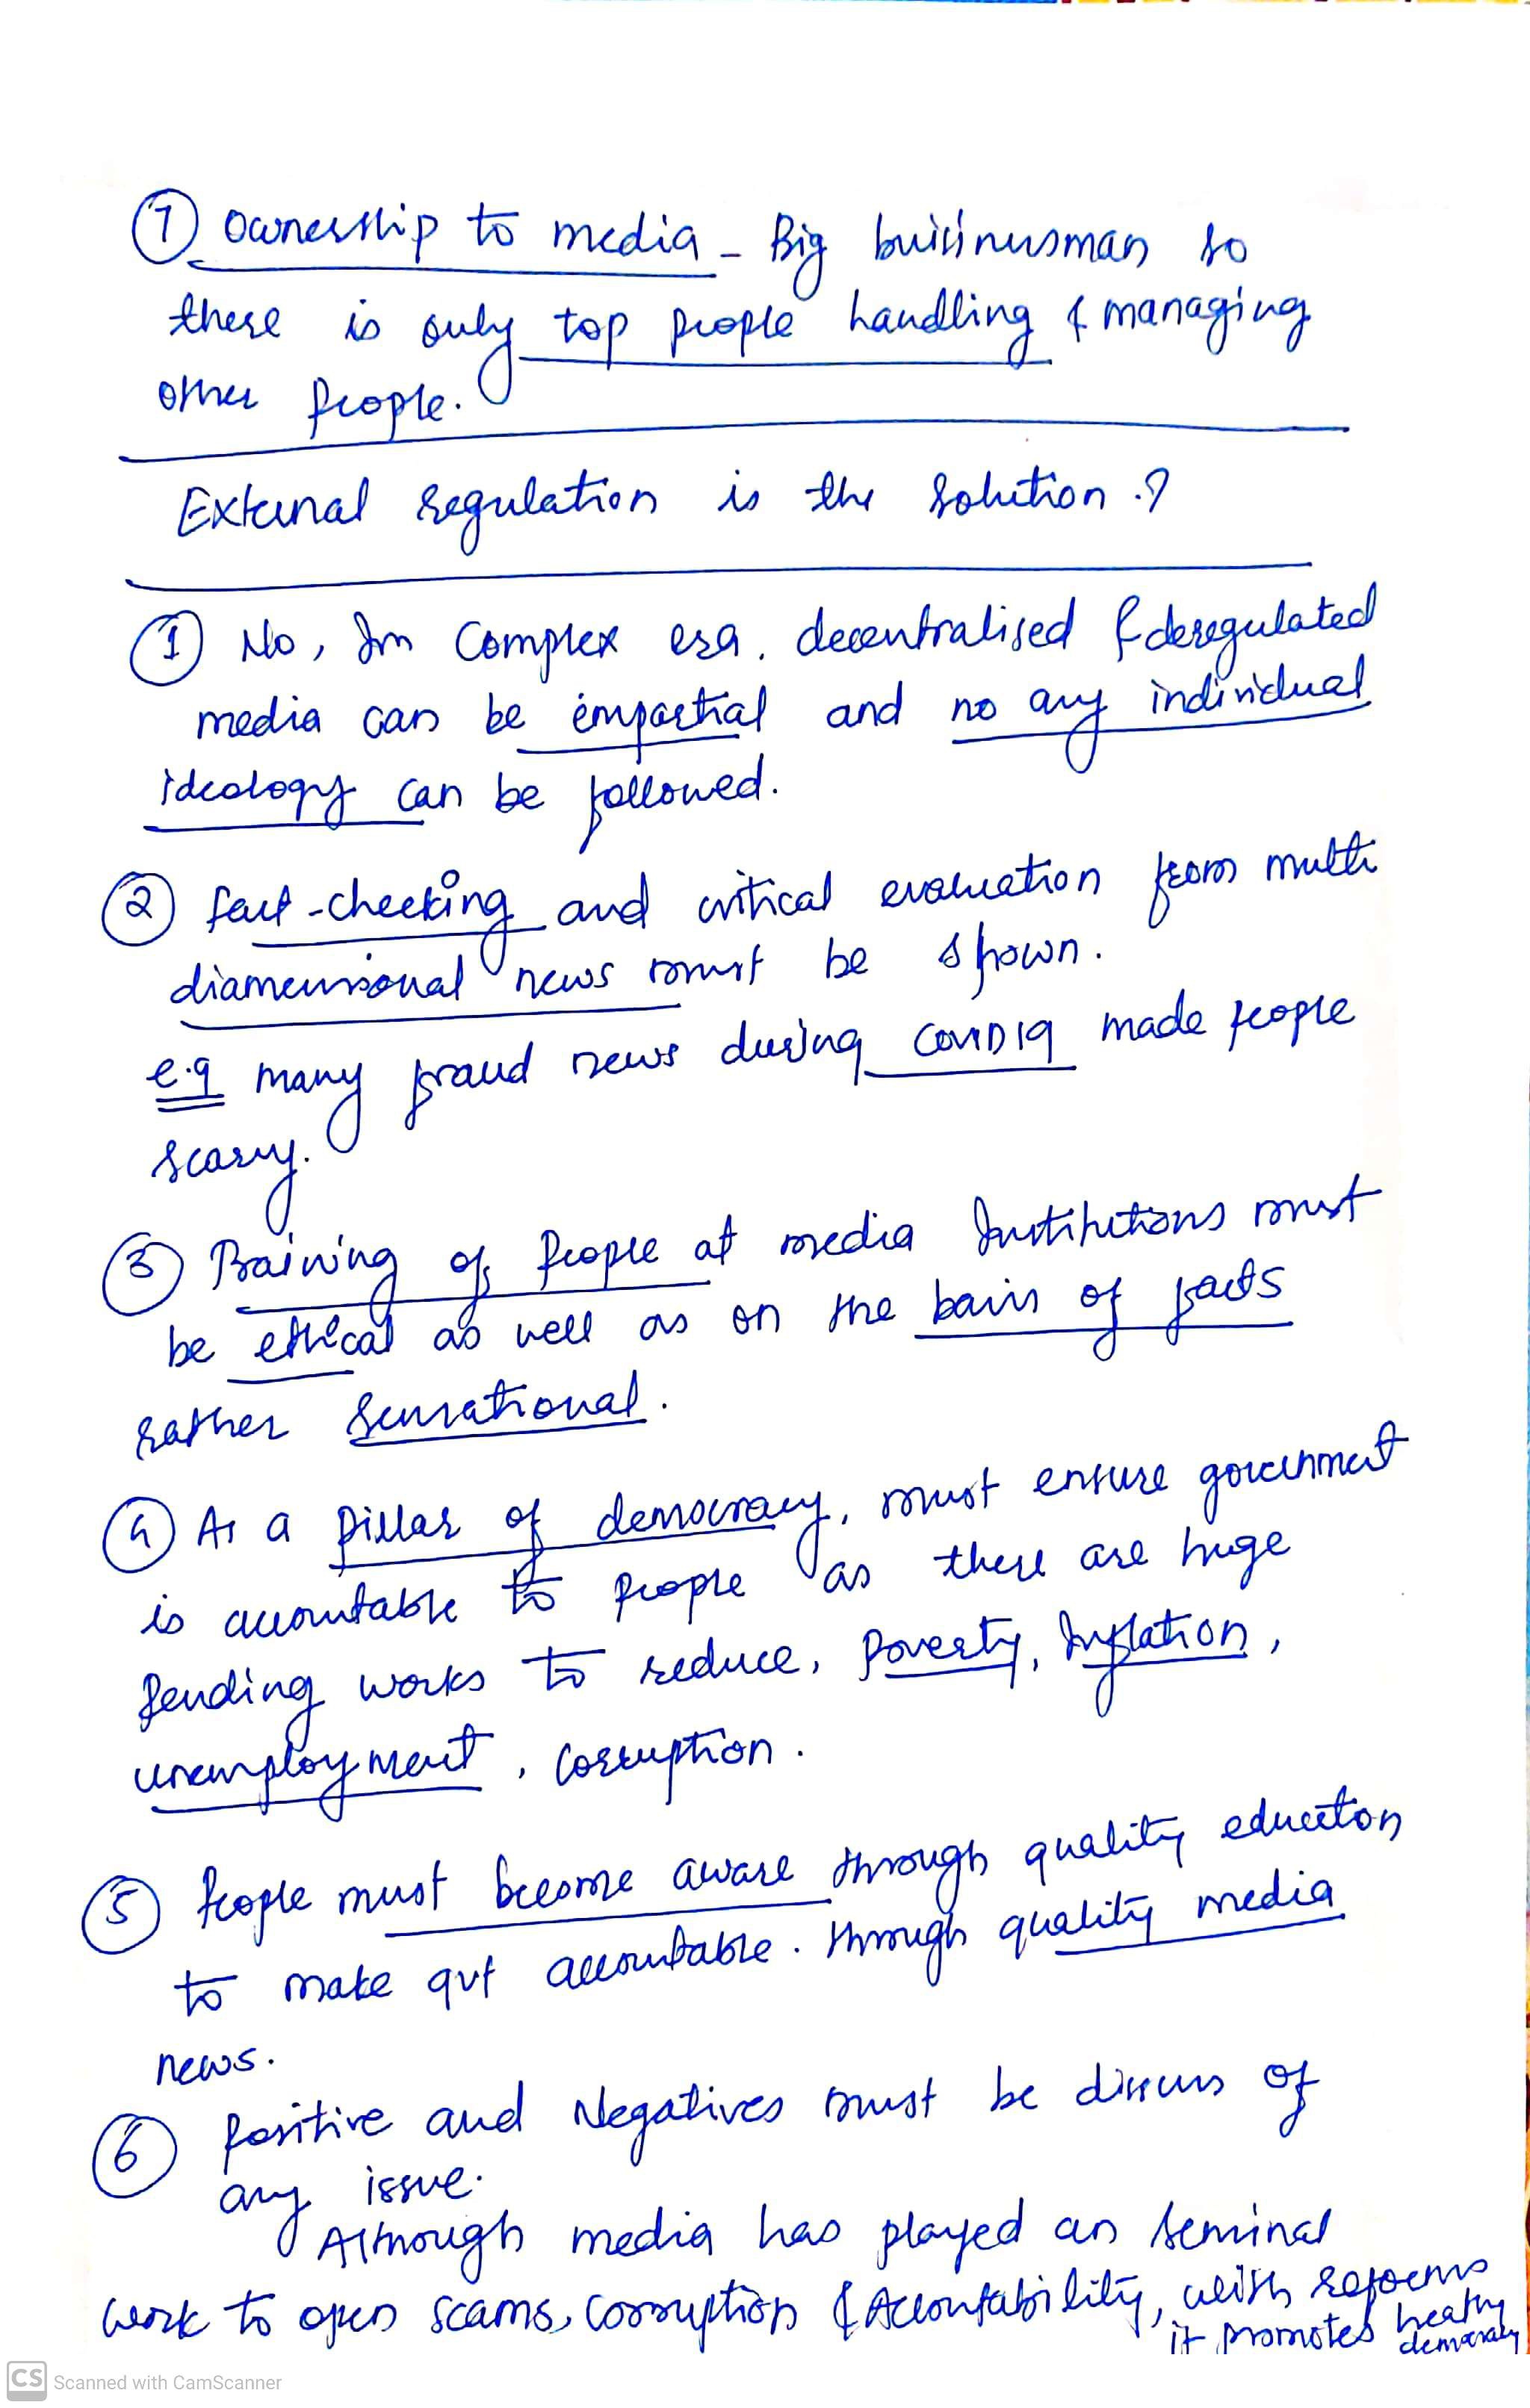 ⑦ Ownership to media - Big buisinessman so
there is only top people handling & managing
other people.
External regulation is the solution ?
① No, In Complex era, decentralised & deregulated
media can be impartial and no any individual
ideology can be followed.
② fact-checking and critical evaluation from multi
diamensional news must be shown.
e.g many fraud news during COVID19 made people
scary.
③ Training of People at media Institutions must
be ethical as well as on the basis of facts
rather Sensational.
④ As a pillar of democracy, must ensure government
is accountable to people as there are huge
pending works to reduce, Poverty, Inflation,
unemployment, Corruption.
⑤ People must become aware through quality education
to make gvt accountable. through quality media
news.
⑥ Positive and Negatives must be discuss of
any issue.
Although media has played an seminal
work to open scams, corruption & Accountability, with reforms
it promotes heathy
democracy
CS Scanned with CamScanner